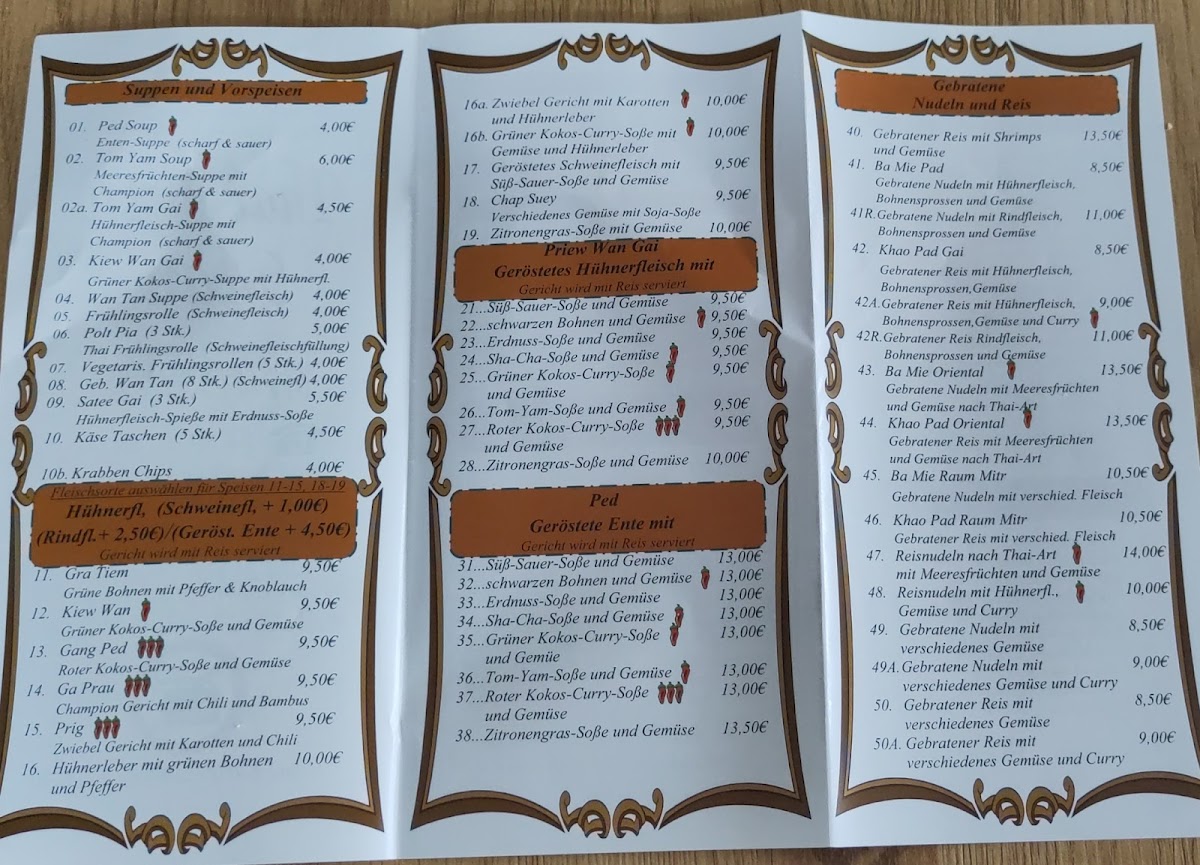 Suppen und Vorspeisen
01. Ped Soup 4,00€
Enten-Suppe (scharf & sauer)
02. Tom Yam Soup 6,00€
Meeresfrüchten-Suppe mit
Champion (scharf & sauer)
02a. Tom Yam Gai 4,50€
Hühnerfleisch-Suppe mit
Champion (scharf & sauer)
03. Kiew Wan Gai 4,00€
Grüner Kokos-Curry-Suppe mit Hühnerfl.
04. Wan Tan Suppe (Schweinefleisch) 4,00€
05. Frühlingsrolle (Schweinefleisch) 4,00€
06. Polt Pia (3 Stk.) 5,00€
Thai Frühlingsrolle (Schweinefleischfüllung)
07. Vegetaris. Frühlingsrollen (5 Stk.) 4,00€
08. Geb. Wan Tan (8 Stk.) (Schweinefl) 4,00€
09. Satee Gai (3 Stk.) 5,50€
Hühnerfleisch-Spieße mit Erdnuss-Soße
10. Käse Taschen (5 Stk.) 4,50€
10b. Krabben Chips 4,00€
Fleischsorte auswählen für Speisen 11-15, 18-19
Hühnerfl, (Schweinefl, + 1,00€)
(Rindfl.+ 2,50€)/(Geröst. Ente + 4,50€)
Gericht wird mit Reis serviert
11. Gra Tiem 9,50€
Grüne Bohnen mit Pfeffer & Knoblauch
12. Kiew Wan 9,50€
Grüner Kokos-Curry-Soße und Gemüse
13. Gang Ped 9,50€
Roter Kokos-Curry-Soße und Gemüse
14. Ga Prau 9,50€
Champion Gericht mit Chili und Bambus
15. Prig 9,50€
Zwiebel Gericht mit Karotten und Chili
16. Hühnerleber mit grünen Bohnen 10,00€
und Pfeffer
16a. Zwiebel Gericht mit Karotten 10,00€
und Hühnerleber
16b. Grüner Kokos-Curry-Soße mit 10,00€
Gemüse und Hühnerleber
17. Geröstetes Schweinefleisch mit 9,50€
Süß-Sauer-Soße und Gemüse
18. Chap Suey 9,50€
Verschiedenes Gemüse mit Soja-Soße
19. Zitronengras-Soße mit Gemüse 10,00€
Priew Wan Gai
Geröstetes Hühnerfleisch mit
Gericht wird mit Reis serviert
21...Süß-Sauer-Soße und Gemüse 9,50€
22...schwarzen Bohnen und Gemüse 9,50€
23...Erdnuss-Soße und Gemüse 9,50€
24...Sha-Cha-Soße und Gemüse 9,50€
25...Grüner Kokos-Curry-Soße 9,50€
und Gemüse
26...Tom-Yam-Soße und Gemüse 9,50€
27...Roter Kokos-Curry-Soße 9,50€
und Gemüse
28...Zitronengras-Soße und Gemüse 10,00€
Ped
Geröstete Ente mit
Gericht wird mit Reis serviert
31...Süß-Sauer-Soße und Gemüse 13,00€
32...schwarzen Bohnen und Gemüse 13,00€
33...Erdnuss-Soße und Gemüse 13,00€
34...Sha-Cha-Soße und Gemüse 13,00€
35...Grüner Kokos-Curry-Soße 13,00€
und Gemüe
36...Tom-Yam-Soße und Gemüse 13,00€
37...Roter Kokos-Curry-Soße 13,00€
und Gemüse
38...Zitronengras-Soße und Gemüse 13,50€
Gebratene
Nudeln und Reis
40. Gebratener Reis mit Shrimps 13,50€
und Gemüse
41. Ba Mie Pad 8,50€
Gebratene Nudeln mit Hühnerfleisch,
Bohnensprossen und Gemüse
41R. Gebratene Nudeln mit Rindfleisch, 11,00€
Bohnensprossen und Gemüse
42. Khao Pad Gai 8,50€
Gebratener Reis mit Hühnerfleisch,
Bohnensprossen,Gemüse
42A. Gebratener Reis mit Hühnerfleisch, 9,00€
Bohnensprossen,Gemüse und Curry
42R. Gebratener Reis Rindfleisch, 11,00€
Bohnensprossen und Gemüse
43. Ba Mie Oriental 13,50€
Gebratene Nudeln mit Meeresfrüchten
und Gemüse nach Thai-Art
44. Khao Pad Oriental 13,50€
Gebratener Reis mit Meeresfrüchten
und Gemüse nach Thai-Art
45. Ba Mie Raum Mitr 10,50€
Gebratene Nudeln mit verschied. Fleisch
46. Khao Pad Raum Mitr 10,50€
Gebratener Reis mit verschied. Fleisch
47. Reisnudeln nach Thai-Art 14,00€
mit Meeresfrüchten und Gemüse
48. Reisnudeln mit Hühnerfl., 10,00€
Gemüse und Curry
49. Gebratene Nudeln mit 8,50€
verschiedenes Gemüse
49A. Gebratene Nudeln mit 9,00€
verschiedenes Gemüse und Curry
50. Gebratener Reis mit 8,50€
verschiedenes Gemüse
50A. Gebratener Reis mit 9,00€
verschiedenes Gemüse und Curry